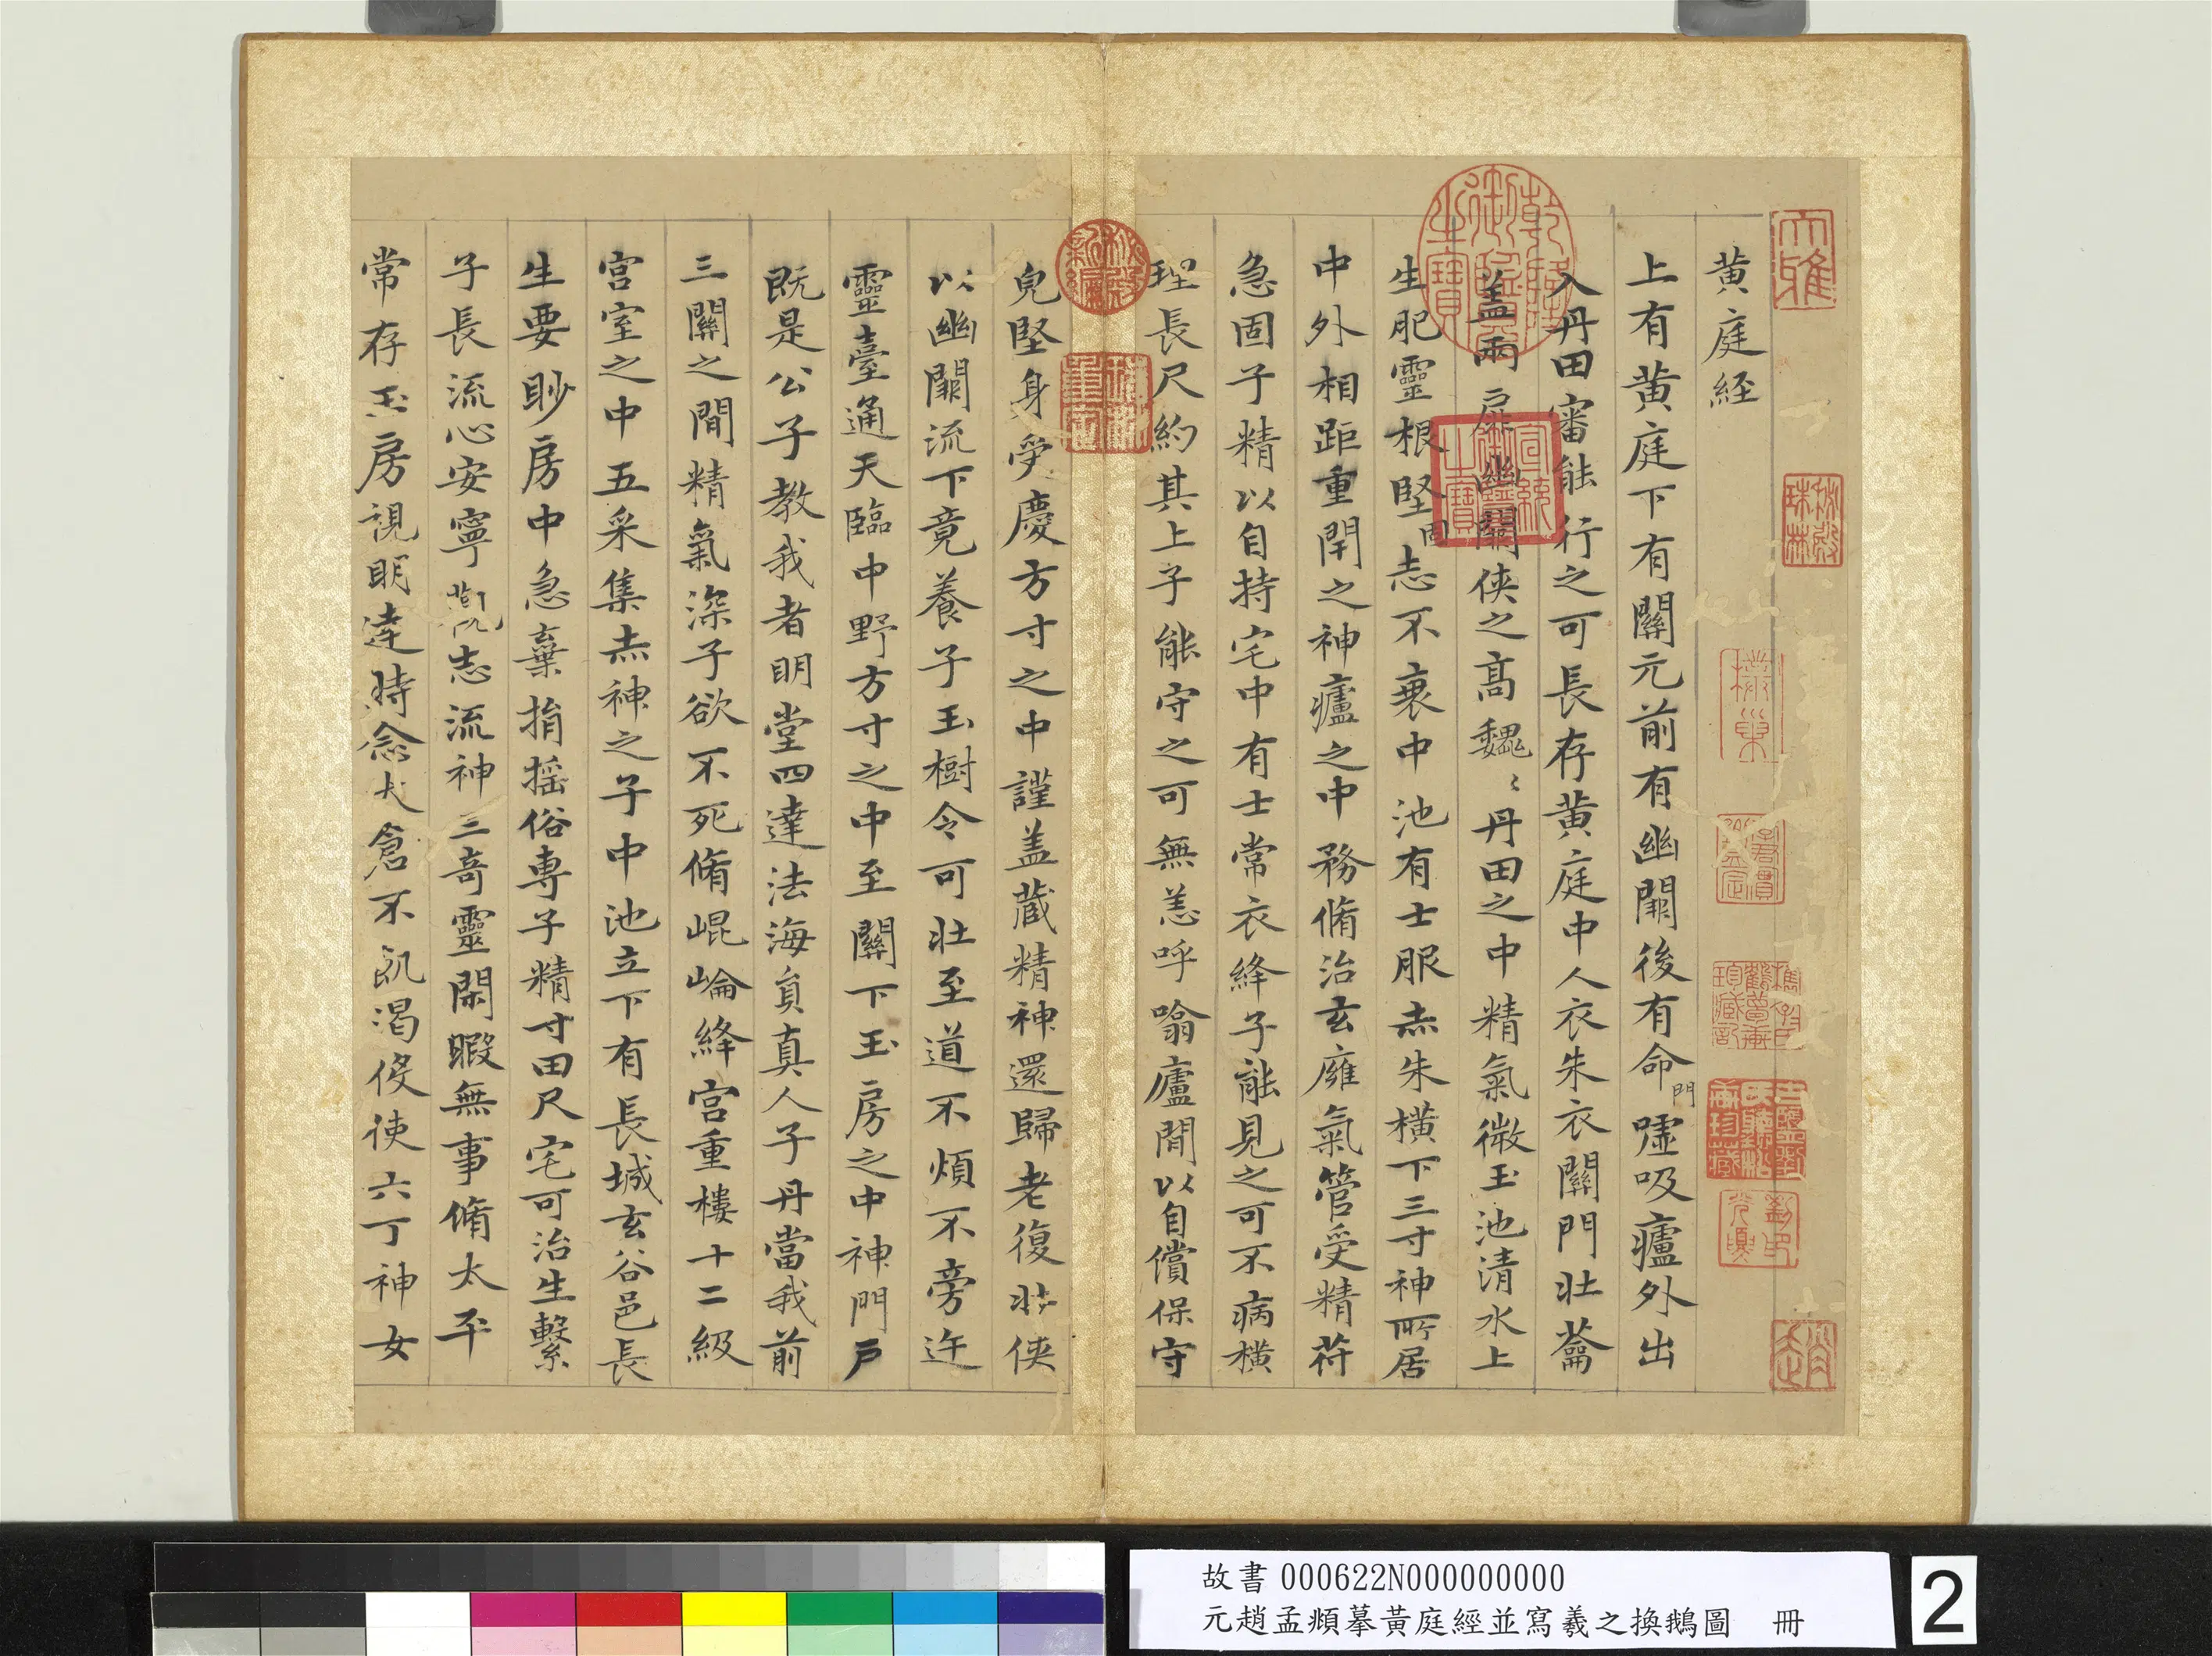 黄庭經
上有黄庭下有關元前有幽闕後有命門噓吸廬外出
入丹田審能行之可長存黄庭中人衣朱衣關門壮蘥
盖兩扉幽闕俠之髙魏〻丹田之中精氣微玉池清水上
生肥靈根堅固志不衰中池有士服赤朱橫下三寸神所居
中外相距重閇之神廬之中務脩治玄廱氣管受精苻
急固子精以自持宅中有士常衣絳子能見之可不病橫
理長尺約其上子能守之可無恙呼噏廬間以自償保守
皃堅身受慶方寸之中謹盖藏精神還歸老復壮俠
以幽闕流下竟養子玉樹令可壮至道不煩不旁迕
靈臺通天臨中野方寸之中至關下玉房之中神門戶
既是公子教我者明堂四達法海負真人子丹當我前
三關之間精氣深子欲不死脩崐崘絳宮重樓十二級
宮室之中五采集赤神之子中池立下有長城玄谷邑長
生要眇房中急棄捐搖俗專子精寸田尺宅可治生繫
子長流心安寧觀志流神三奇靈閑暇無事脩太平
常存玉房視明達時念大倉不飢渴侵使六丁神女
大雅
乾隆御覽之寶
宣統御覽之寶
秘殿珠林
秘殿新編
珠林重定
趙
故書 000622N000000000
元趙孟頫摹黃庭經並寫羲之換鵝圖 冊
2